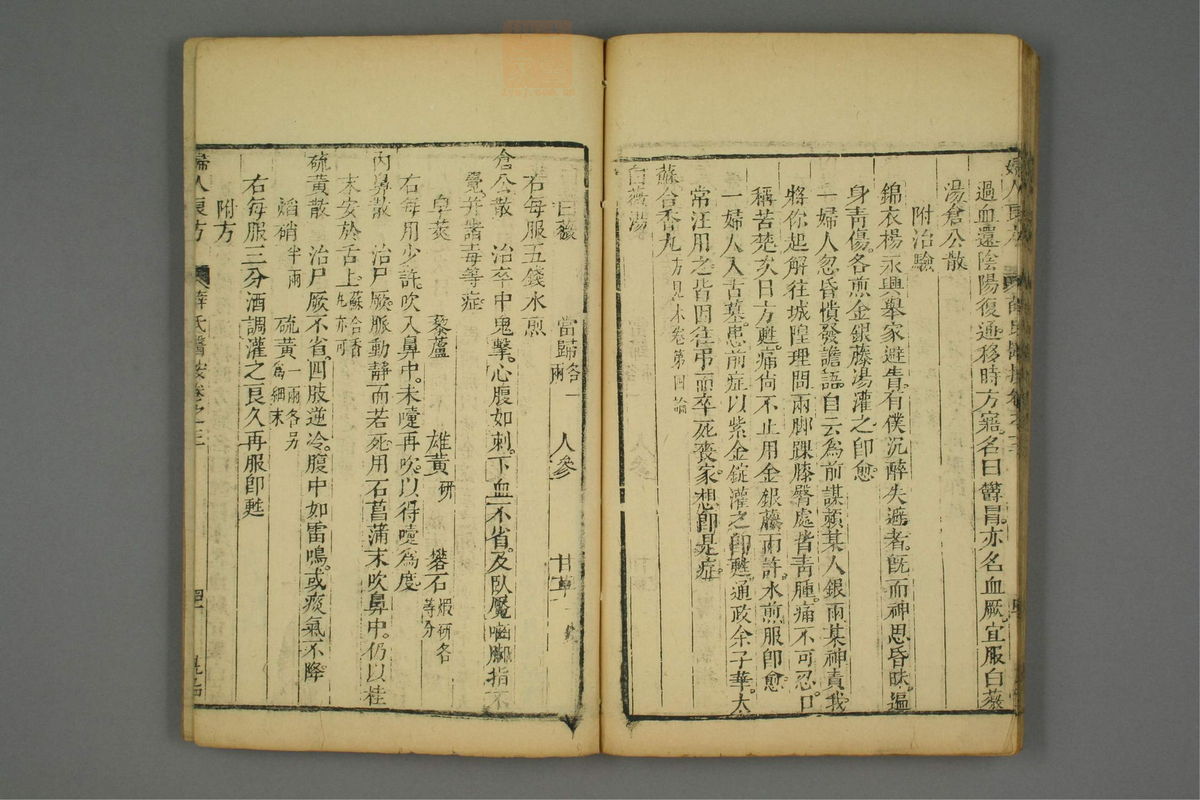 過血還陰陽復通移時方寤名曰鬱冒亦名血厥宜服白薇
湯倉公散
附治驗
錦衣楊永興舉家避眚有僕沉醉失避者既而神思昏昧遍
身青傷各煎金銀藤湯灌之卽愈
一婦人忽昏憒發譫語自云為前謀賴某人銀兩某神責我
將你起解往城隍理問兩脚踝膝臀處皆青腫痛不可忍口
稱苦楚次日方甦痛尙不止用金銀藤兩許水煎服卽愈
一婦人入古墓患前症以紫金錠灌之卽甦通政余子華太
常汪用之皆因往弔而卒死喪家想卽是症
蘇合香丸方見本卷第四論
白薇湯
白薇 當歸各一兩 人參 甘草
右每服五錢水煎
倉公散 治卒中鬼擊心腹如刺下血不省及臥魘嚙脚指不
覺并諸毒等症
皁莢 藜蘆 雄黃研 礬石煅研各等分
右每用少許吹入鼻中未嚏再吹以得嚏為度
內鼻散 治尸厥脈動靜而若死用石菖蒲末吹鼻中仍以桂
末安於舌上蘇合香丸亦可
硫黃散 治尸厥不省四肢逆冷腹中如雷鳴或痰氣不降
焰硝半兩 硫黃一兩各另為細末
右每服三分酒調灌之良久再服卽甦
附方
婦人良方 薛氏醫按卷之三